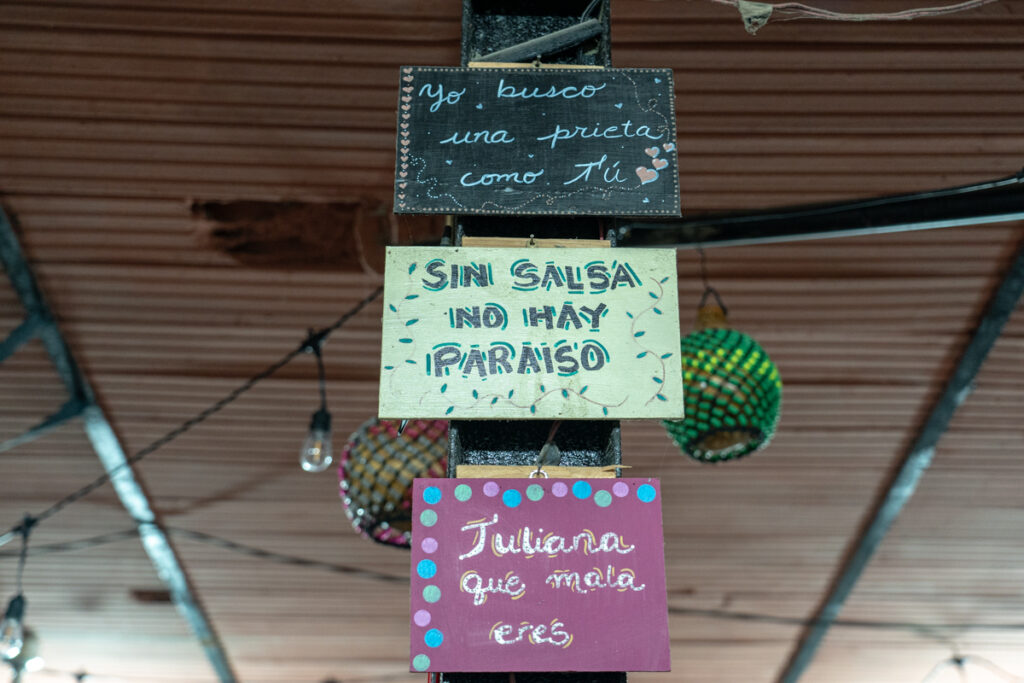 Yo busco
una prieta
como Tú
SIN SALSA
NO HAY
PARAISO
Juliana
que mala
eres